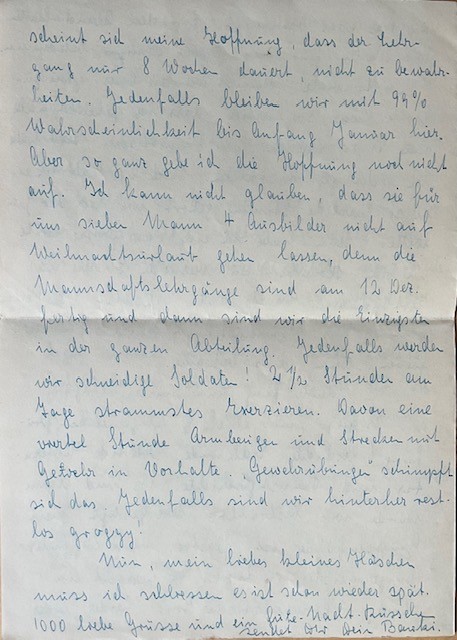 scheint sich meine Hoffnung, dass der Lehr-
gang nur 8 Wochen dauert, nicht zu bewahr-
heiten. Jedenfalls bleiben wir mit 99%
Wahrscheinlichkeit bis Anfang Januar hier.
Aber so ganz gebe ich die Hoffnung noch nicht
auf. Ich kann nicht glauben, dass sie für
uns sieben Mann 4 Ausbilder nicht auf
Weihnachtsurlaub gehen lassen, denn die
Mannschaftslehrgänge sind am 12 Dez.
fertig und dann sind wir die Einzigsten
in der ganzen Abteilung. Jedenfalls werden
wir schneidige Soldaten! 2 1/2 Stunden am
Tage strammstes Exerzieren. Davon eine
viertel Stunde Armbeugen und Strecken mit
Gewehr in Vorhalte. "Gewehrübungen" schimpft
sich das. Jedenfalls sind wir hinterher rest-
los groggy!
Nun, mein liebes kleines Häschen
muss ich schliessen es ist schon wieder spät.
1000 liebe Grüsse und ein Gute-Nacht-Küsschen
sendet Dir Dein